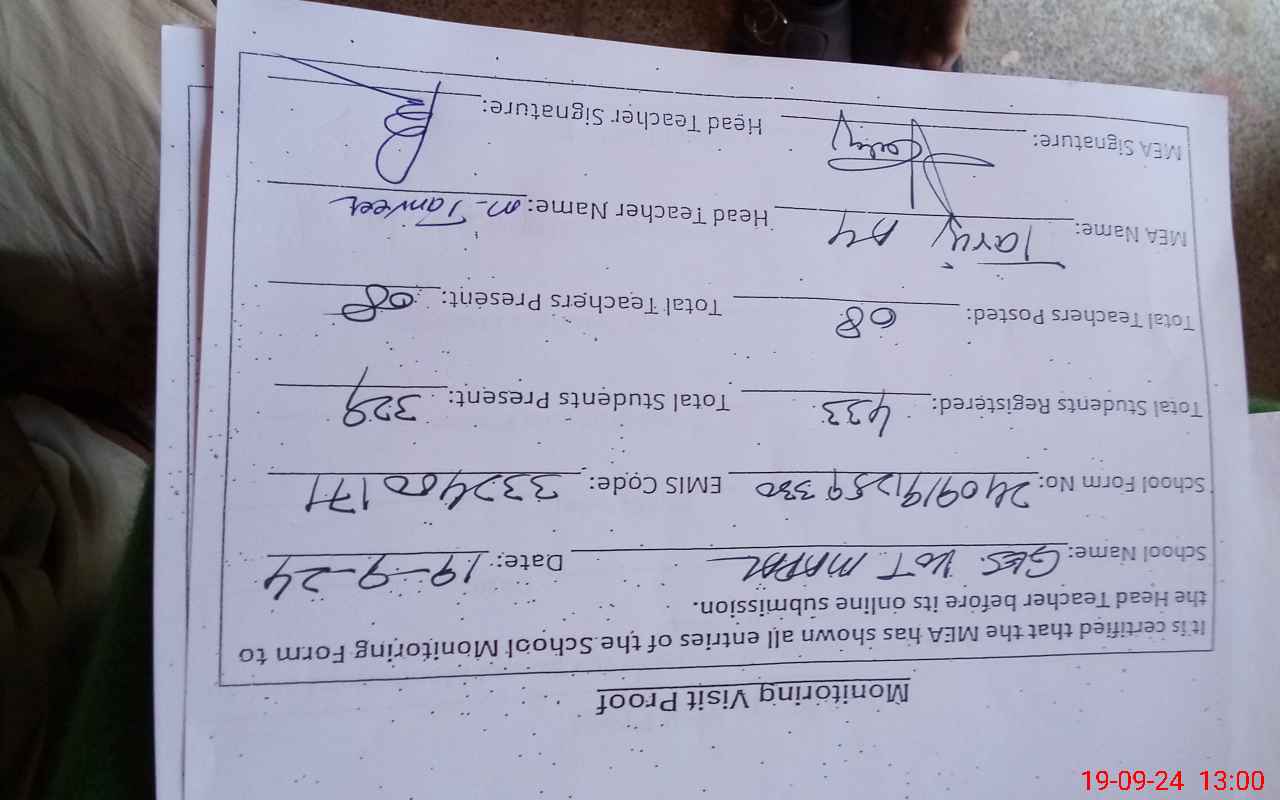 Monitoring Visit Proof
It is certified that the MEA has shown all entries of the School Monitoring Form to
the Head Teacher before its online submission.
School Name: GES KOT MAPAL Date: 19-9-24
School Form No: 2409191259330 EMIS Code: 332400171
Total Students Registered: 433 Total Students Present: 329
Total Teachers Posted: 08 Total Teachers Present: 08
MEA Name: Head Teacher Name: M. Tanveer
MEA Signature: Head Teacher Signature:
19-09-24 13:00